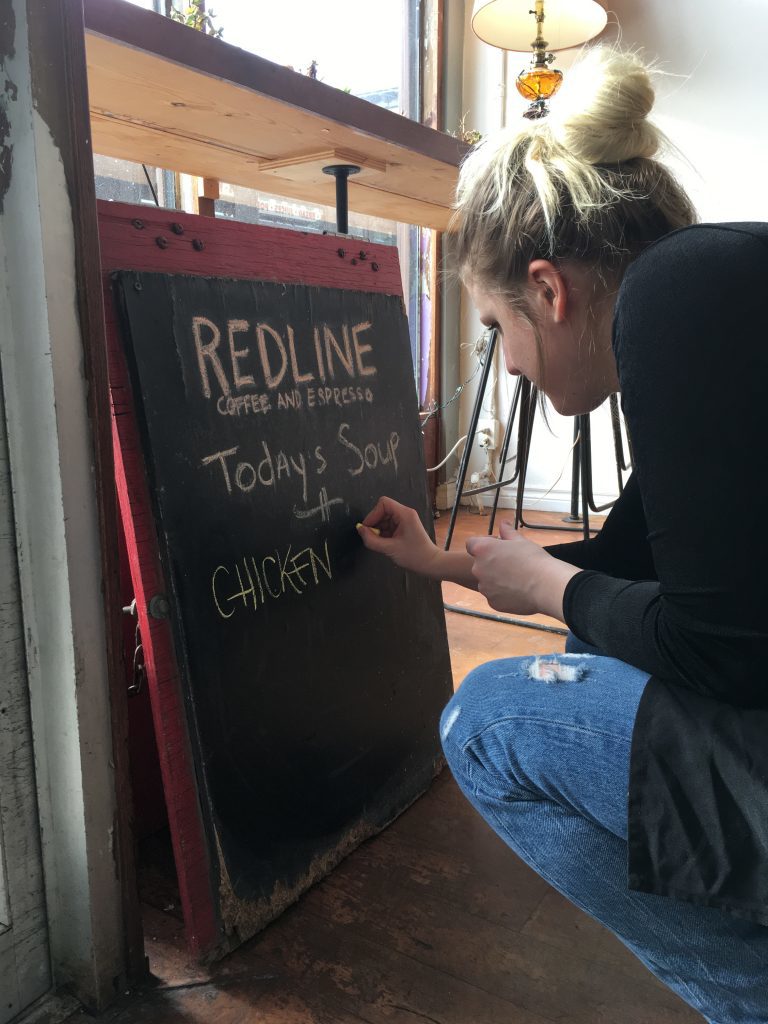 REDLINE
COFFEE AND ESPRESSO
Today's Soup
CHICKEN